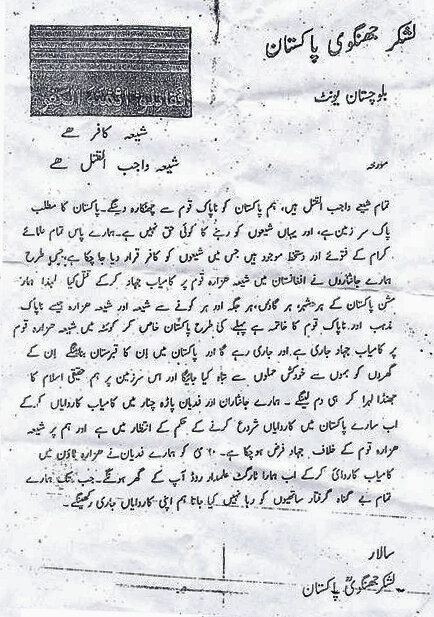 لشکر جھنگوی پاکستان
بلوچستان یونٹ
شیعہ کافر ھے
شیعہ واجب القتل ھے
مورخہ
تمام شیعے واجب القتل ہیں، ہم پاکستان کو ناپاک قوم سے چھٹکارہ دینگے۔ پاکستان کا مطلب
پاک سر زمین ہے، اور یہاں شیعوں کو رہنے کا کوئی حق نہیں ہے۔ ہمارے پاس تمام علمائے
کرام کے فتوئے اور دستخط موجود ہیں جس میں شیعوں کو کافر قرار دیا جا چکا ہے، جس طرح
ہمارے جانثاروں نے افغانستان میں شیعہ ھزارہ قوم پر کامیاب جہاد کرکے قتل کیا لہذا ہمارا
مشن پاکستان کے ہر شہر، ہر گاؤں، ہر جگہ اور ہر کونے سے شیعہ اور شیعہ ھزارہ جیسے ناپاک
مذہب اور ناپاک قوم کا خاتمہ ہے پہلے کی طرح پاکستان خاص کر کوئٹہ میں شیعہ ھزارہ قوم
پر کامیاب جہاد جاری ہے اور جاری رہے گا اور پاکستان میں اِن کا قبرستان بنائینگے اِن کے
گھروں کو بموں سے خودکش حملوں سے تباہ کیا جائیگا اور اس سرزمین پر ہم حقیقی اسلام کا
جھنڈا لہرا کر ہی دم لینگے۔ ہمارے جانثاران اور فدیان پاڑہ چنار میں کامیاب کاروایاں کرکے
اب سارے پاکستان میں کاروایاں شروع کرنے کے حکم کے انتظار میں ہے اور ہم پر شیعہ
ھزارہ قوم کے خلاف جہاد فرض ہوچکا ہے۔ مئی کو ہمارے فدیان نے ھزارہ ٹاؤن میں
کامیاب کاروائی کرکے اب ہمارا ٹارگٹ علمدار روڈ آپ کے گھر ہونگے۔ جب تک ہمارے
تمام بے گناہ گرفتار ساتھیوں کو رہا نہیں کیا جاتا ہم اپنی کاروایاں جاری رکھینگے۔
سالار
لشکر جھنگویؒ پاکستان